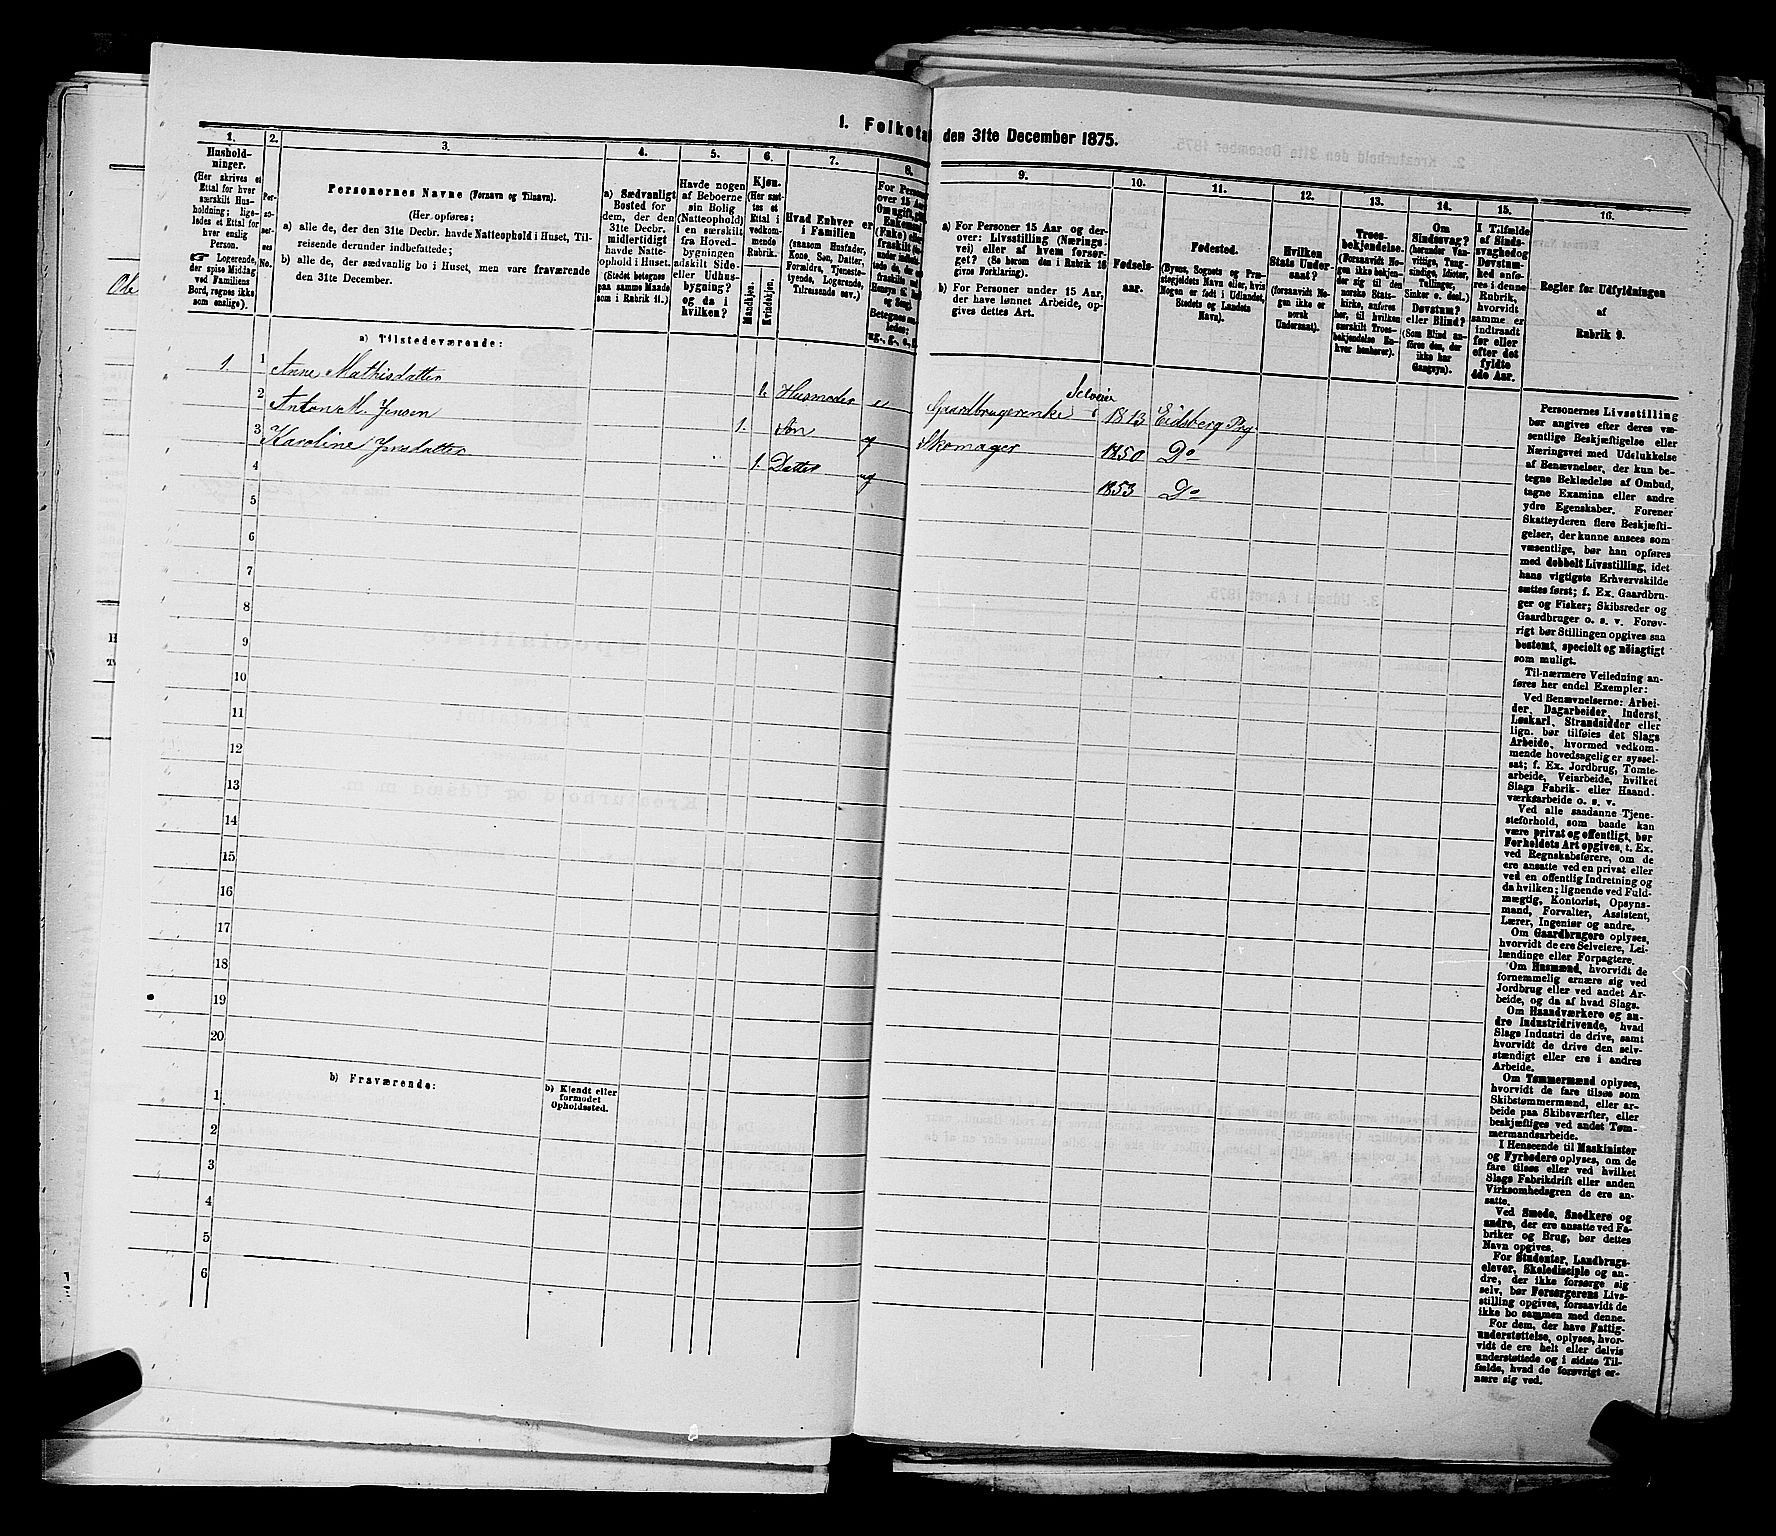 I. Folketa
den 31te December 1875.
1.
2.
3.
4.
5.
6.
7.
8.
9.
10.
11.
12.
13.
14.
15.
16.
Hushold-
ninger.
(Her skrives et
Ettal for hver
særskilt Hus-
holdning; lige-
ledes et Ettal for
hver enslig
Person.
☞ Logerende,
der spise Middag
ved Familiens
Bord, regnes ikke
som enslige).
Per-
so-
ner-
nes
No.
Personernes Navne (Fornavn og Tilnavn).
(Her opføres:
a) alle de, der den 31te Decbr. havde Natteophold i Huset, Til-
reisende derunder indbefattede;
b) alle de, der sædvanlig bo i Huset, men vare fraværende
den 31te December.
a) Sædvanligt
Bosted for
dem, der den
31te Decbr.
midlertidigt
havde Natte-
ophold i Huset.
(Stedet betegnes
paa samme Maade
som i Rubrik 11.)
Havde nogen
af Beboerne
sin Bolig
(Natteophold)
i en særskilt
fra Hoved-
bygningen
adskilt Side-
eller Udhus-
bygning?
og da i
hvilken?
Kjøn.
(Her sæt-
tes et
Ettal i
vedkom-
mende
Rubrik.
Mandkjøn.
Kvindekjøn.
Hvad Enhver er
i Familien
(saasom Husfader,
Kone, Søn, Datter,
Forældre, Tjeneste-
tyende, Logerende,
Tilreisende osv.)
For Persone
over 15 Aar
Om ugift, gift
Enkemand
(Enke) eller
fraskilt
Betegnes saa-
ledes:
ug., g., e., f.
a) For Personer 15 Aar og der-
over: Livsstilling (Nærings-
vei) eller af hvem forsør-
get? (Se herom den i Rubrik 16
givne Forklaring).
b) For Personer under 15 Aar,
der have lønnet Arbeide, op-
gives dettes Art.
Fødsels-
aar.
Fødested.
(Byens, Sognets og Præ-
stegjeldets Navn eller, hvis
Nogen er født i Udlandet,
Stedets og Landets
Navn).
Hvilken
Stats Under-
saat?
(forsaavidt No-
gen ikke er
norsk
Undersaat).
Troes-
bekjendelse.
(Forsaavidt No-
gen ikke bekjen-
der sig til den
norske Stats-
kirke, anføres
her, til hvilken
særskilt Troes-
bekjendelse En-
hver henhører).
Om
Sindssvag?
(herunder Van-
vittige, Tung-
sindige, Idioter,
Tullinger,
Sinker o. desl.)
Døvstum?
eller Blind?
(Som Blind an-
føres den, der
ikke har
Gangsyn).
I Tilfælde
af Sinds-
svaghed og
Døvstum-
hed anfø-
res i denne
Rubrik,
hvorvidt
samme er
indtraadt
før eller
efter det
fyldte
4de Aar.
Regler for Udfyldningen
af
Rubrik 9.
a) Tilstedeværende:
1 1 Anne Mathisdatter 1. Husmoder e Gaardbrugerenke Selveier 1813 Eidsberg Prg.
2 Anton M. Jensen 1. Søn ug Skomager 1850 Do
3 Karoline Jensdatter 1. Datter ug 1853 Do
4
5
6
7
8
9
10
11
12
13
14
15
16
17
18
19
20
b) Fraværende:
b) Kjendt eller
formodet
Opholdssted.
1
2
3
4
5
6
Personernes Livsstilling
bør angives efter deres væ-
sentlige Beskjæftigelse eller
Næringsvei med Udelukkelse
af Benævnelser, der kun be-
tegne Beklædelse af Ombud,
tagne Examina eller andre
ydre Egenskaber. Forener
Skatteyderen flere Beskjæfti-
gelser, der kunne ansees som
væsentlige, bør han opføres
med dobbelt Livsstilling, idet
hans vigtigste Erhvervskilde
sættes først; f. Ex. Gaardbru-
ger og Fisker; Skibsreder og
Gaardbruger o. s. v. Forøv-
rigt bør Stillingen opgives saa
bestemt, specielt og nøiagtigt
som muligt.
Til nærmere Veiledning an-
føres her endel Exempler:
Ved Benævnelserne: Arbei-
der, Dagarbeider, Inderst,
Løskarl, Strandsidder eller
lign. bør tilføies det Slags
Arbeide, hvormed vedkom-
mende hovedsagelig er syssel-
sat; f. Ex. Jordbrug, Tomte-
arbeide, Veiarbeide, hvilket
Slags Fabrik- eller Haand-
værksarbeide o. s. v.
Ved alle saadanne Tjene-
steforhold, som baade kan
være privat og offentligt, bør
Forholdets Art opgives, t. Ex.
ved Regnskabsførere, om de
ere ansatte ved en privat eller
ved en offentlig Indretning og
da hvilken; lignende ved Fuld-
mægtig, Kontorist, Opsyns-
mand, Forvalter, Assistent,
Lærer, Ingeniør og andre.
Om Gaardbrugere oplyses,
hvorvidt de ere Selveiere, Lei-
lændinge eller Forpagtere.
Om Husmænd, hvorvidt de
fornemmelig ernære sig ved
Jordbrug eller ved andet Ar-
beide, og da af hvad Slags.
Om Haandværkere og an-
dre Industridrivende, hvad
Slags Industri de drive, samt
hvorvidt de drive den selv-
stændigt eller ere i andres
Arbeide.
Om Tømmermænd oplyses,
hvorvidt de fare tilsøs som
Skibstømmermænd, eller ar-
beide paa Skibsværfter, eller
beskjæftiges ved andet Tøm-
mermandsarbeide.
I Henseende til Maskinister
og Fyrbødere oplyses, om de
fare tilsøs eller ved hvilket
Slags Fabrikdrift eller anden
Virksomhedsgren de ere an-
satte.
Ved Smede, Snedkere og
andre, der ere ansatte ved Fa-
briker og Brug, bør dettes
Navn opgives.
For Studenter, Landbrugs-
elever, Skoledisciple og an-
dre, der ikke forsørge sig
selv, bør Forsørgerens Livs-
stilling opgives, forsaavidt de
ikke bo sammen med denne.
For dem, der have Fattig-
understøttelse, oplyses, hvor-
vidt de ere helt eller delvis
understøttede og i sidste Til-
fælde, hvad de forøvrigt er-
nære sig ved.